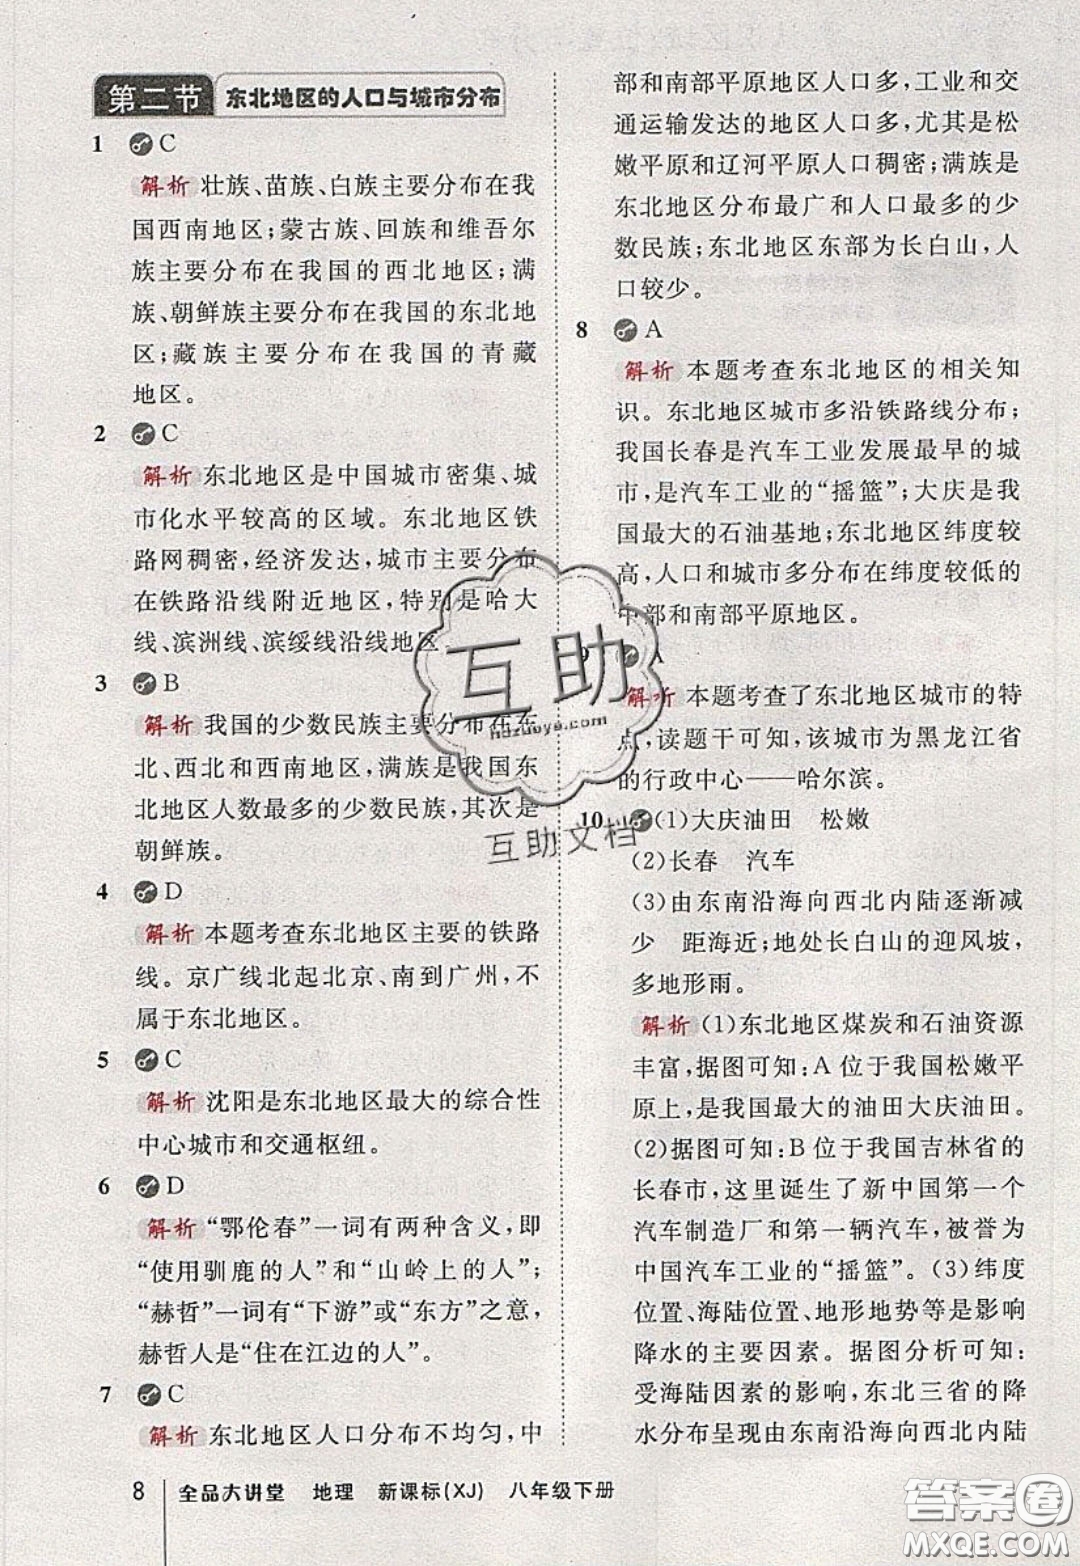 第二节 东北地区的人口与城市分布
1 C
解析 壮族、苗族、白族主要分布在我
国西南地区;蒙古族、回族和维吾尔
族主要分布在我国的西北地区;满
族、朝鲜族主要分布在我国的东北地
区;藏族主要分布在我国的青藏
地区。
2 C
解析 东北地区是中国城市密集、城
市化水平较高的区域。东北地区铁
路网稠密,经济发达,城市主要分布
在铁路沿线附近地区,特别是哈大
线、滨洲线、滨绥线沿线地区。
3 B
解析 我国的少数民族主要分布在东
北、西北和西南地区,满族是我国东
北地区人数最多的少数民族,其次是
朝鲜族。
4 D
解析 本题考查东北地区主要的铁路
线。京广线北起北京、南到广州,不
属于东北地区。
5 C
解析 沈阳是东北地区最大的综合性
中心城市和交通枢纽。
6 D
解析 “鄂伦春”一词有两种含义,即
“使用驯鹿的人”和“山岭上的人”;
“赫哲”一词有“下游”或“东方”之意,
赫哲人是“住在江边的人”。
7 C
解析 东北地区人口分布不均匀,中
部和南部平原地区人口多,工业和交
通运输发达的地区人口多,尤其是松
嫩平原和辽河平原人口稠密;满族是
东北地区分布最广和人口最多的少
数民族;东北地区东部为长白山,人
口较少。
8 A
解析 本题考查东北地区的相关知
识。东北地区城市多沿铁路线分布;
我国长春是汽车工业发展最早的城
市,是汽车工业的“摇篮”;大庆是我
国最大的石油基地;东北地区纬度较
高,人口和城市多分布在纬度较低的
中部和南部平原地区。
9 A
解析 本题考查了东北地区城市的特
点,读题干可知,该城市为黑龙江省
的行政中心——哈尔滨。
10 (1)大庆油田 松嫩
(2)长春 汽车
(3)由东南沿海向西北内陆逐渐减
少 距海近;地处长白山的迎风坡,
多地形雨。
解析 (1)东北地区煤炭和石油资源
丰富,据图可知:A位于我国松嫩平
原上,是我国最大的油田大庆油田。
(2)据图可知:B位于我国吉林省的
长春市,这里诞生了新中国第一个
汽车制造厂和第一辆汽车,被誉为
中国汽车工业的“摇篮”。(3)纬度
位置、海陆位置、地形地势等是影响
降水的主要因素。据图分析可知:
受海陆因素的影响,东北三省的降
水分布呈现由东南沿海向西北内陆
8 全品大讲堂 地理 新课标(XJ) 八年级下册
互助
hdzuoye.com
互助文档
答案圈
MXQE.COM